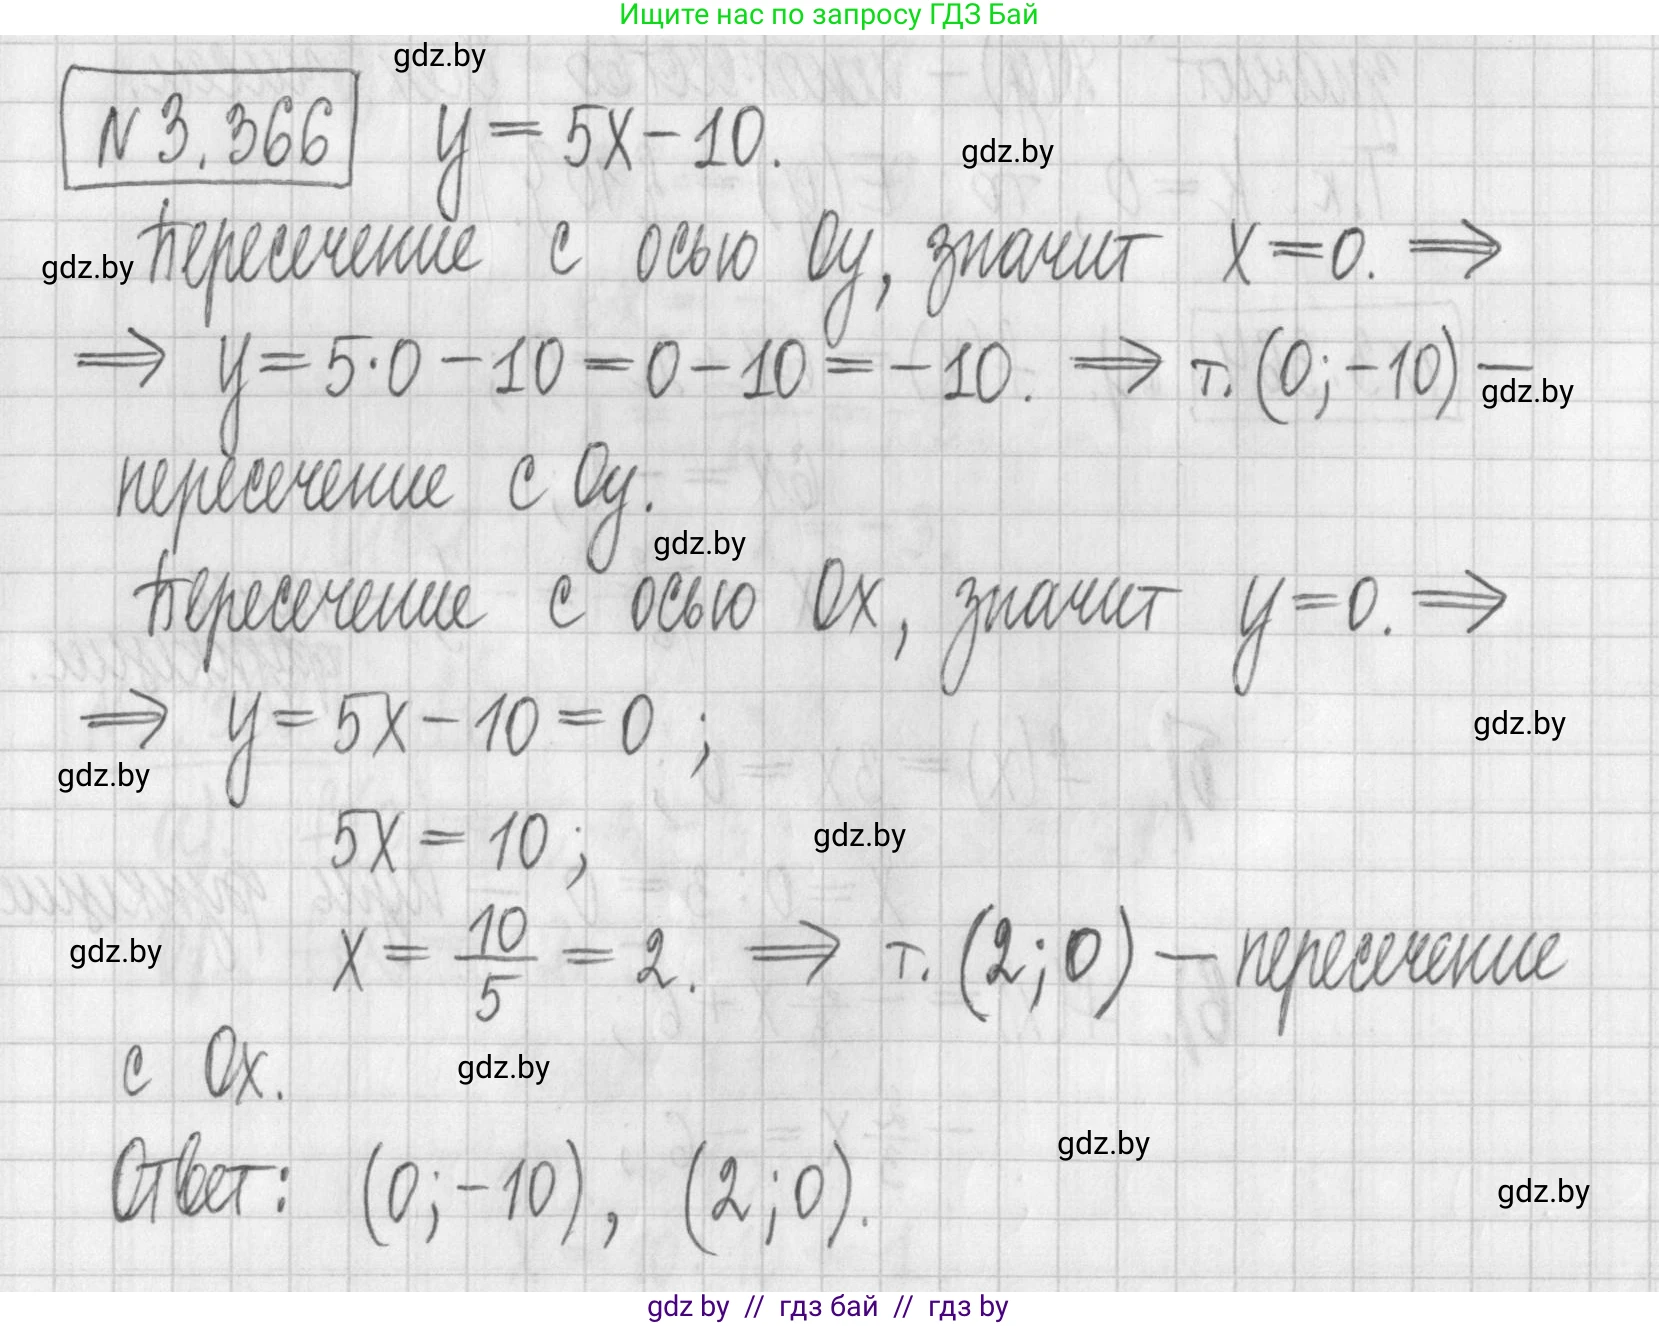 Ищите нас по запросу ГДЗ Бай
gdz.by
N 3.366 y = 5x - 10.
gdz.by
Пересечение с осью Oy, значит x = 0. ⇒
gdz.by
⇒ y = 5·0 - 10 = 0 - 10 = -10. ⇒ т. (0; -10) —
gdz.by
пересечение с Oy.
gdz.by
Пересечение с осью Ox, значит y = 0. ⇒
⇒ y = 5x - 10 = 0 ;
gdz.by
gdz.by
5x = 10 ;
gdz.by
x = 10/5 = 2. ⇒ т. (2; 0) — пересечение
gdz.by
с Ox.
gdz.by
gdz.by
Ответ: (0; -10), (2; 0).
gdz.by
gdz by // гдз бай // гдз by